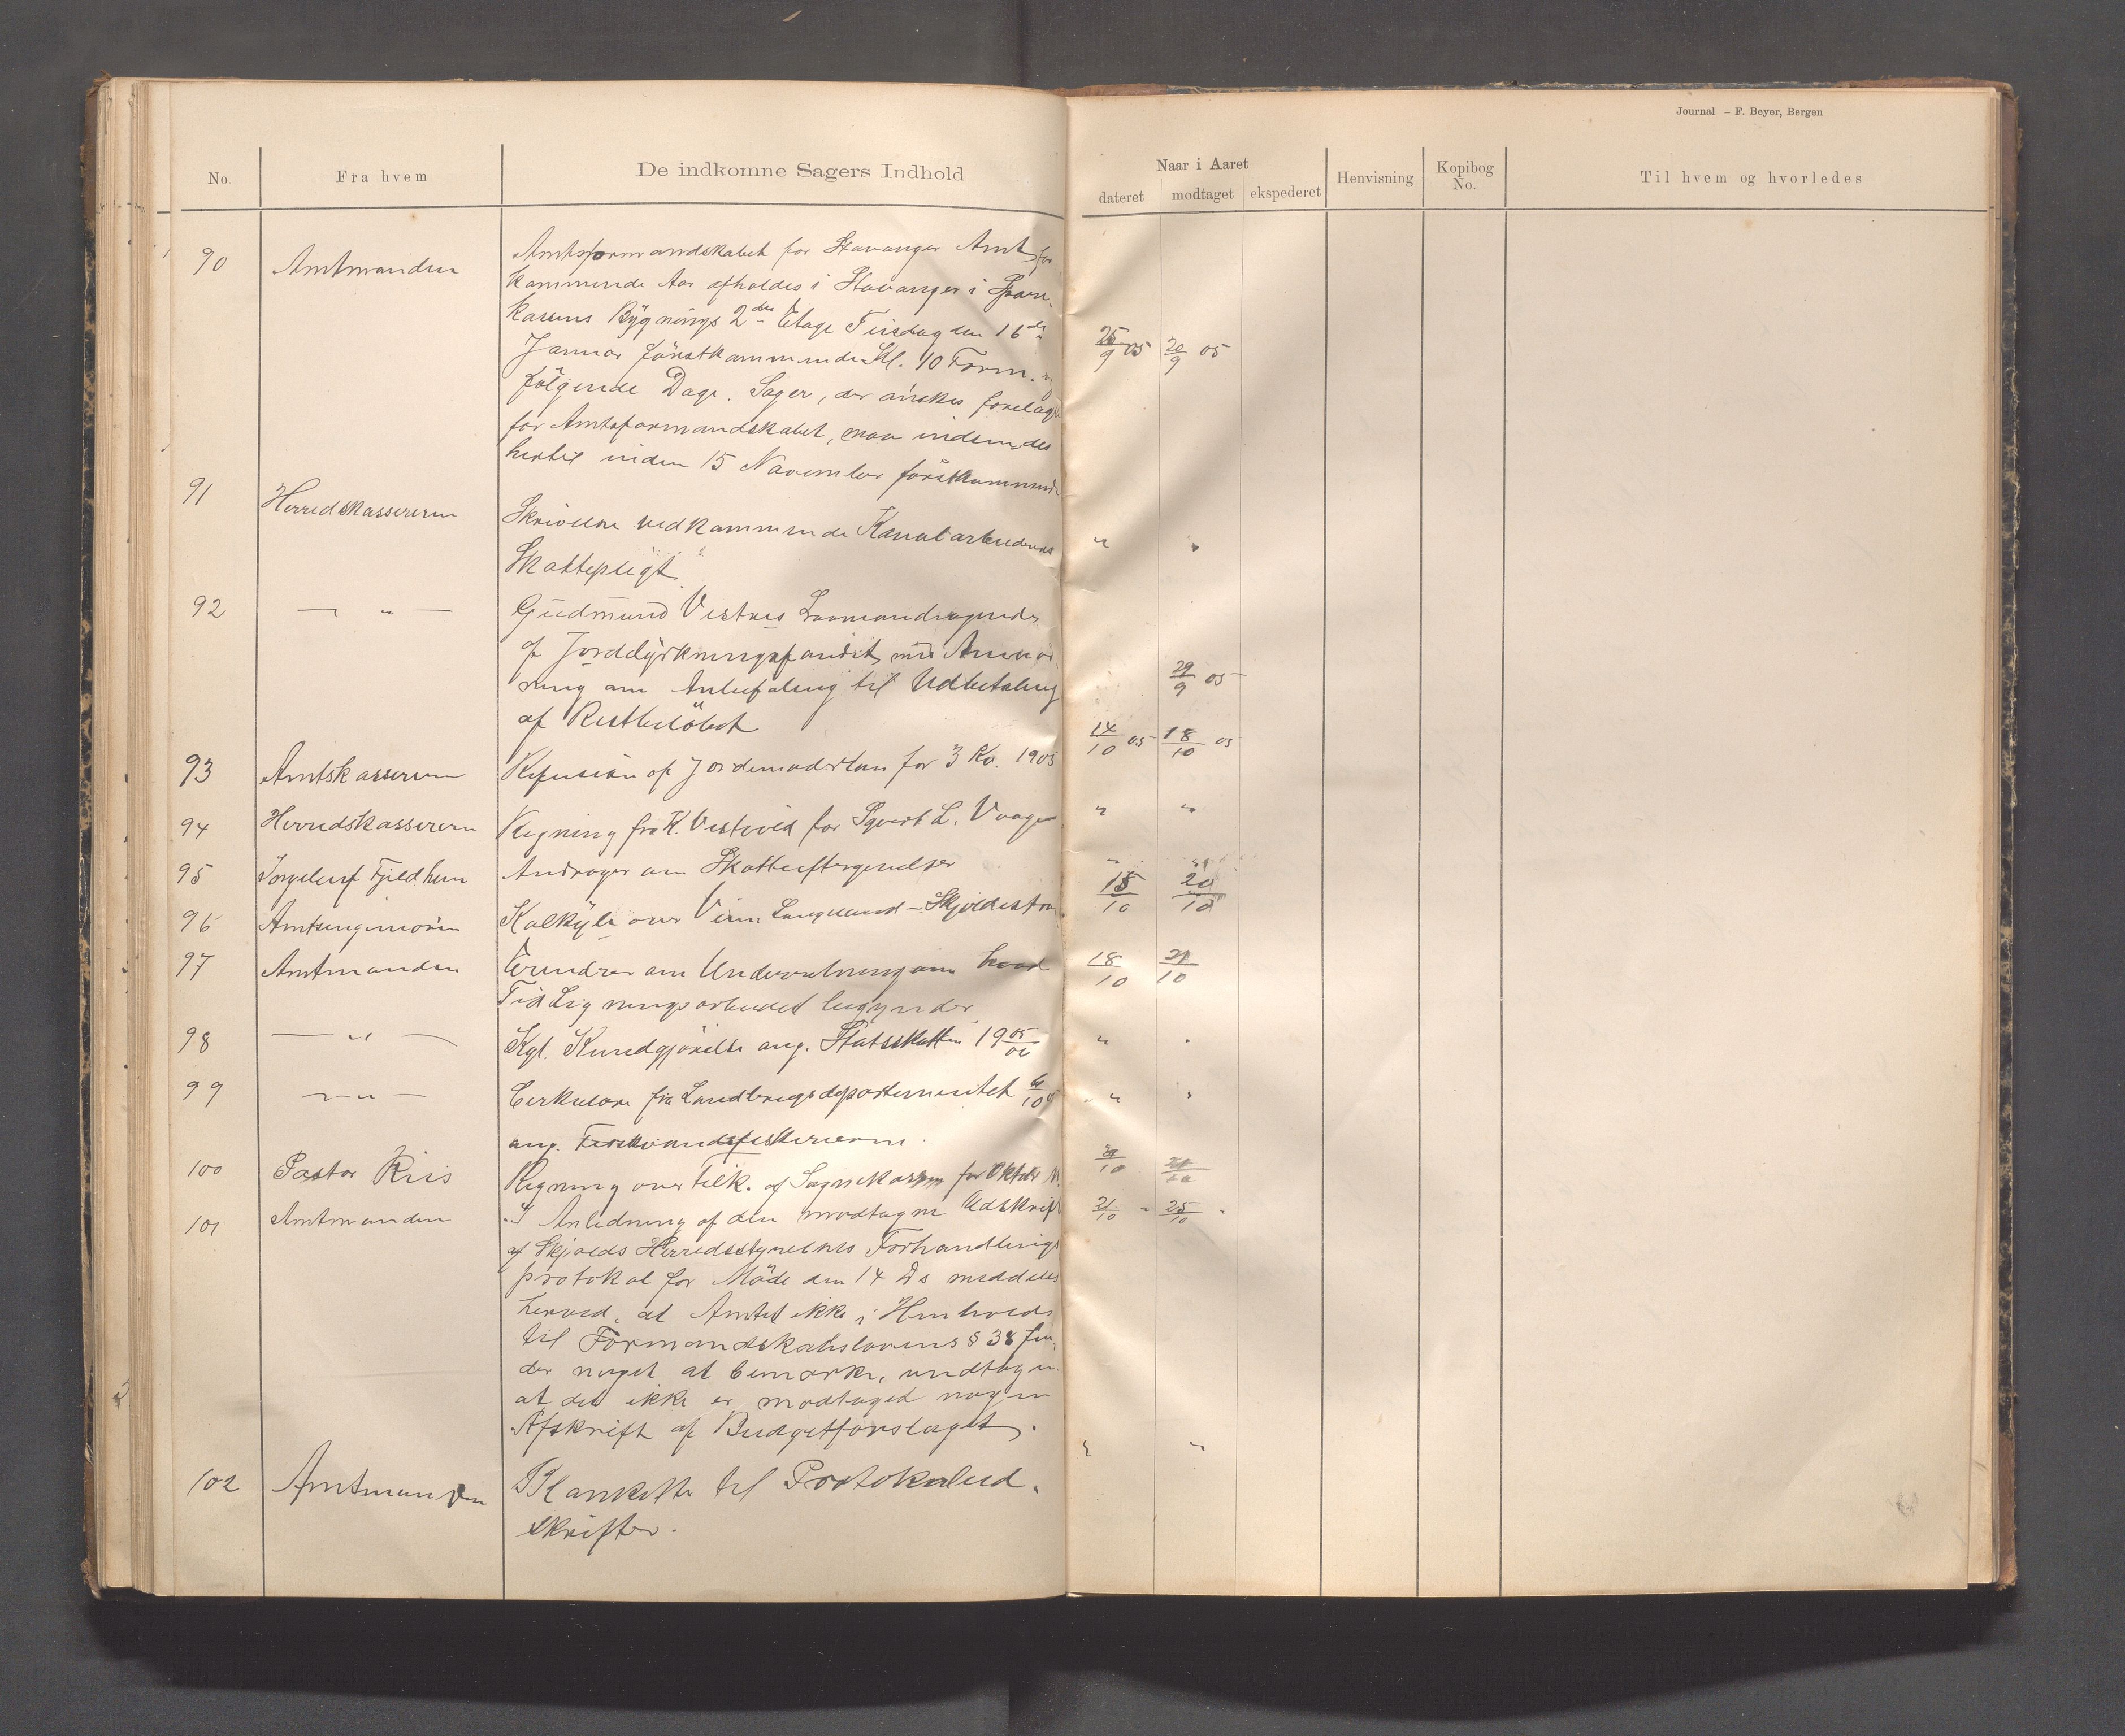 Journal – F. Beyer, Bergen
No. Fra hvem De indkomne Sagers Indhold Naar i Aaret Henvisning Kopibog No. Til hvem og hvorledes
dateret modtaget ekspederet
90 Amtmanden Amtsformandskabet for Stavanger Amt for
kommende Aar afholdes i Stavanger i Spare-
kassens Bygnings 2den Etage Tirsdag den 16de
Januar förstkommende Kl. 10 Form. 25/9 05
fölgende Dage. Sager, der önskes forelagt
for Amtsformandskabet, maa indsendes
hertil inden 15 November förstkommende
91 Herredskassereren Skrivelse vedkommende Kanalarbeidernes " "
Skattepligt
92 — " — Gudmund Vestnes Laaneandragende
af Jorddyrkningsfondet, med Anmod-
ning om Anbefaling til Udbetaling 29/9 05
af Restbelöbet
93 Amtskassereren Refusion af Jordemoderlön for 3 Kv. 1905 14/10 05 18/10 05
94 Herredskassereren Regning fra K. Vestvid for L. Vaage " "
95 Fjeldheim Andrager om Skatteeftergivelse " "
96 Amtsingeniören Kalkyle over Veien Langeland – Skjoldestra 15/10 20/10
97 Amtmanden Erindrer om Underretning om hvad 18/10 21/10
Tid Ligningsarbeidet begynder
98 — " — Kgl. Kundgjörelse ang. Statsskatten 1905/06 " "
99 — " — Cirkulære fra Landbrugsdepartementet 6/10 05 " "
ang. Ferskvandsfiskerierne.
100 Pastor Riis Regning over Tilk. af Sognekassen for Oktober
101 Amtmanden I Anledning af den modtagne Udskrift 21/10 " 25/10 "
af Skjolds Herredsstyrelses Forhandlings
protokol for Möde den 14 Ds meddeles
herved, at Amtet ikke i Henhold
til Formandskabslovens § 38 fin-
der noget at bemærke, undtagen
at det ikke er modtaget nogen
Afskrift af Budgetforslaget. " "
102 Amtmanden Blanketter til Protokolud-
skrifter.